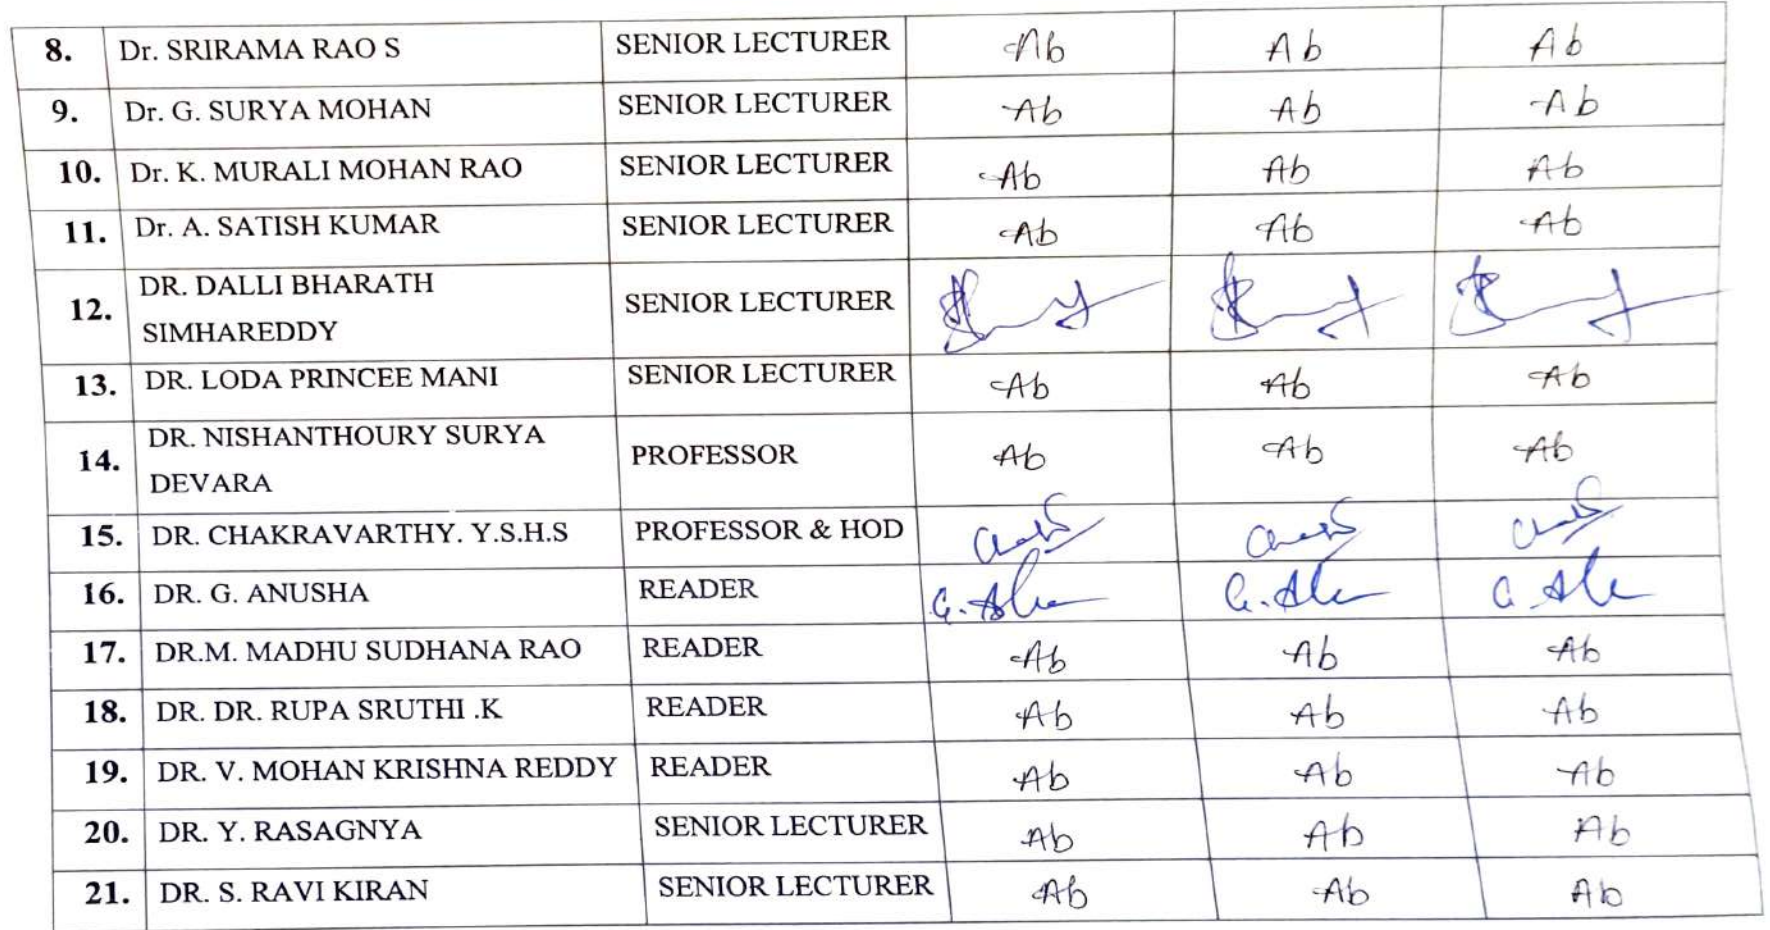 8. Dr. SRIRAMA RAO S SENIOR LECTURER Ab Ab Ab
9. Dr. G. SURYA MOHAN SENIOR LECTURER Ab Ab Ab
10. Dr. K. MURALI MOHAN RAO SENIOR LECTURER Ab Ab Ab
11. Dr. A. SATISH KUMAR SENIOR LECTURER Ab Ab Ab
12. DR. DALLI BHARATH SENIOR LECTURER
SIMHAREDDY
13. DR. LODA PRINCEE MANI SENIOR LECTURER Ab Ab Ab
14. DR. NISHANTHOURY SURYA PROFESSOR Ab Ab Ab
DEVARA
15. DR. CHAKRAVARTHY. Y.S.H.S PROFESSOR & HOD
16. DR. G. ANUSHA READER
17. DR.M. MADHU SUDHANA RAO READER Ab Ab Ab
18. DR. DR. RUPA SRUTHI .K READER Ab Ab Ab
19. DR. V. MOHAN KRISHNA REDDY READER Ab Ab Ab
20. DR. Y. RASAGNYA SENIOR LECTURER Ab Ab Ab
21. DR. S. RAVI KIRAN SENIOR LECTURER Ab Ab Ab